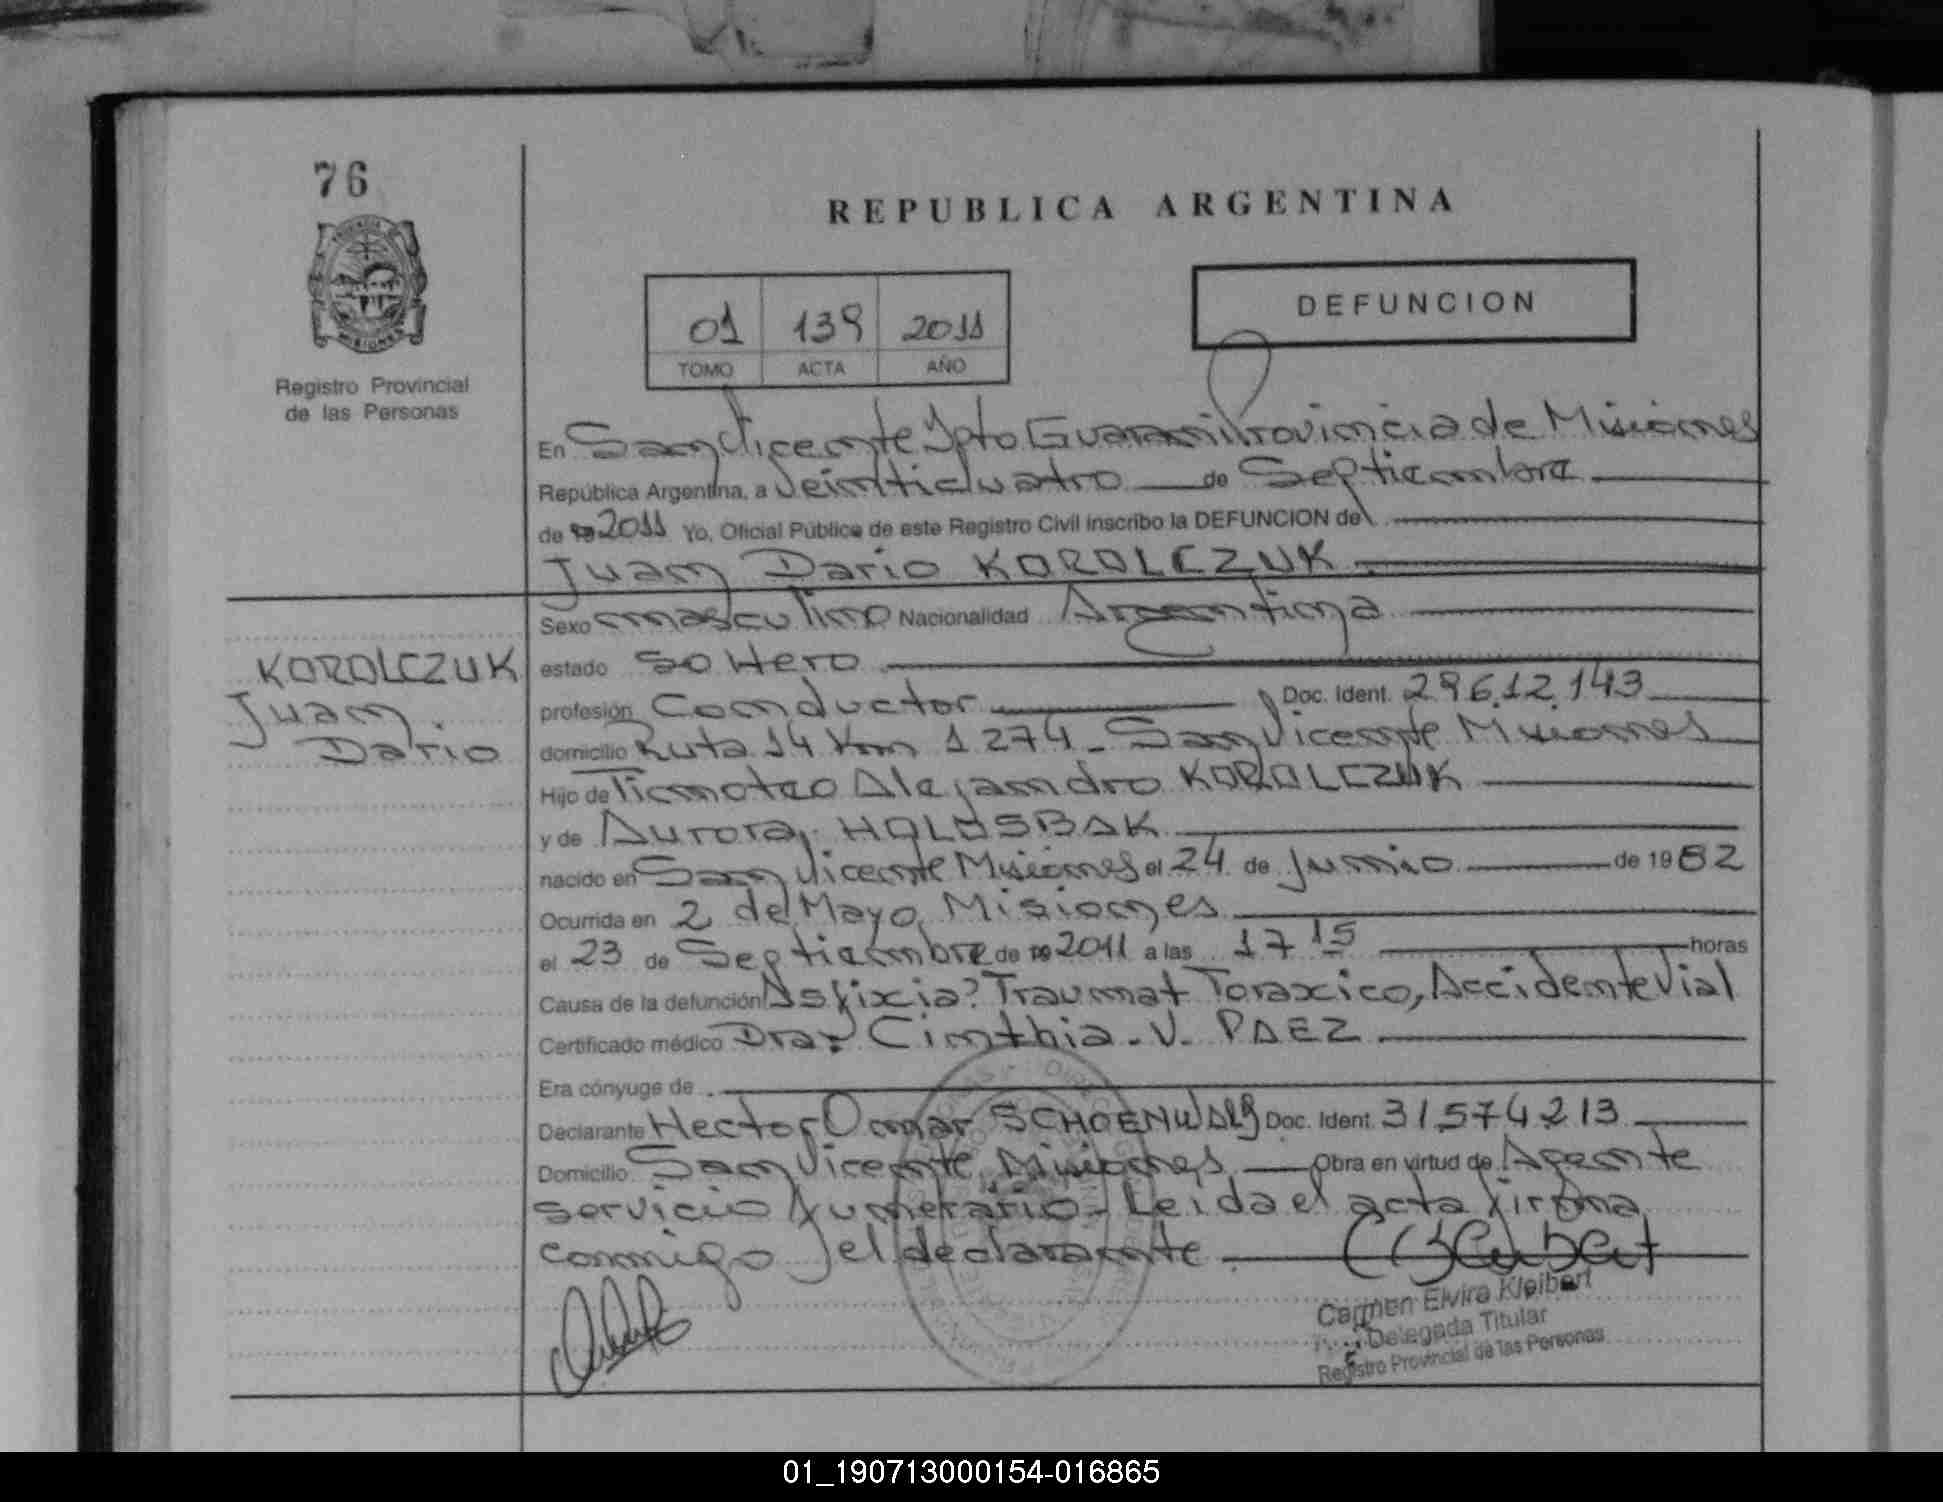 76
REPUBLICA ARGENTINA
PROVINCIA
MISIONES
Registro Provincial
de las Personas
01 139 2011
TOMO ACTA AÑO
DEFUNCION
En San Vicente Dpto Guarani Provincia de Misiones
República Argentina, a Veinticuatro de Septiembre
de 19 2011 Yo, Oficial Público de este Registro Civil inscribo la DEFUNCION de
Juan Dario KOROLCZUK
Sexo masculino Nacionalidad Argentina
KOROLCZUK
Juan
Dario
estado soltero
profesión Conductor Doc. Ident. 29.612.143
domicilio Ruta 14 Km 1274 - San Vicente Misiones
Hijo de Timoteo Alejandro KOROLCZUK
y de Aurora HOLOSBAK
nacido en San Vicente Misiones el 24 de Junio de 1982
Ocurrida en 2 de Mayo, Misiones
el 23 de Septiembre de 19 2011 a las 17 15 horas
Causa de la defunción Asfixia? Traumat Toraxico, Accidente Vial
Certificado médico Dra. Cinthia. V. PAEZ
Era cónyuge de
Declarante Hector Omar Doc. Ident. 31.574.213
Domicilio San Vicente, Misiones Obra en virtud de Agente
servicio fumerario - Leida el acta firma
conmigo el declarante
Carmen Elvira Kleibert
Delegada Titular
Registro Provincial de las Personas
01_190713000154-016865